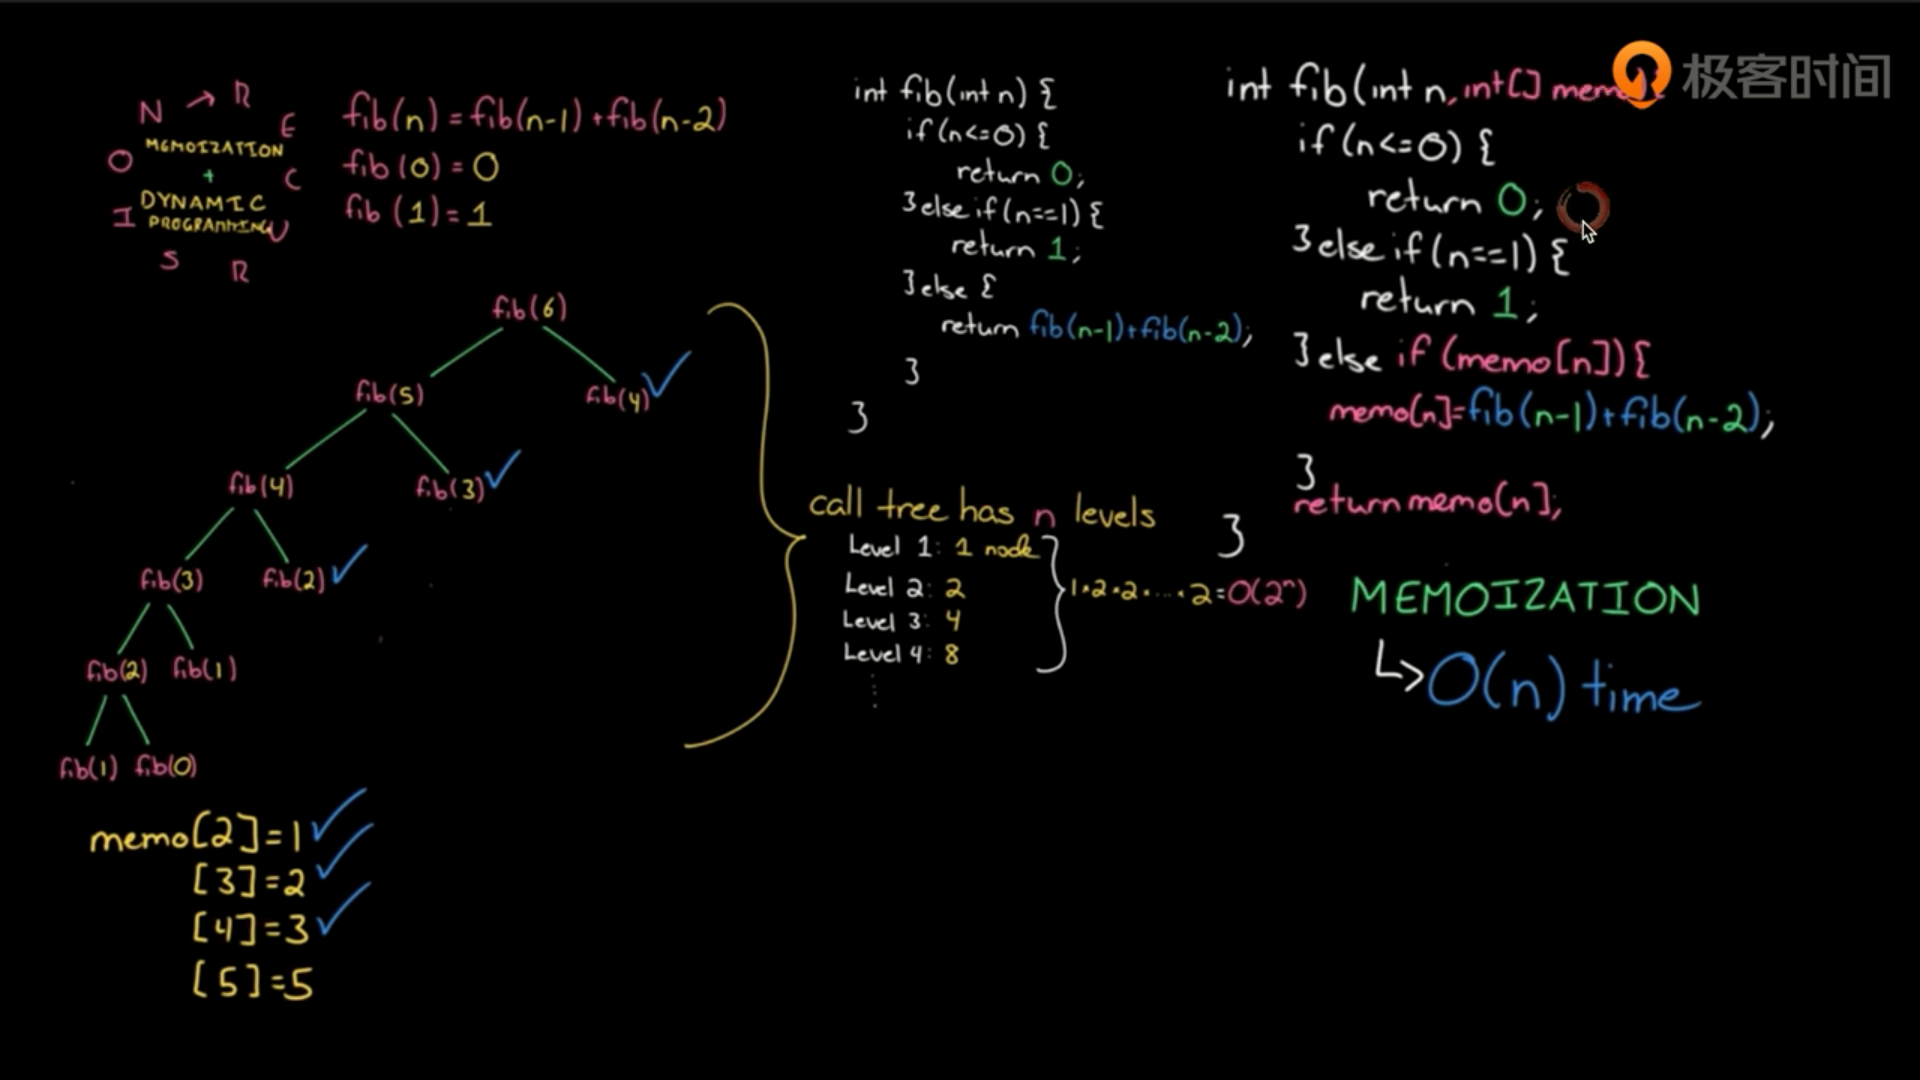 RECURSION
MEMOIZATION
+
DYNAMIC
PROGRAMMING
fib(n) = fib(n-1) + fib(n-2)
fib(0) = 0
fib(1) = 1
fib(6)
fib(5) fib(4)
fib(4) fib(3)
fib(3) fib(2)
fib(2) fib(1)
fib(1) fib(0)
memo[2]=1
[3]=2
[4]=3
[5]=5
int fib(int n) {
if(n<=0) {
return 0;
}else if(n==1) {
return 1;
}else {
return fib(n-1)+fib(n-2);
}
}
call tree has n levels
Level 1: 1 node
Level 2: 2
Level 3: 4
Level 4: 8
1·2·2·....·2=O(2ⁿ)
int fib(int n, int[] memo)
if(n<=0) {
return 0;
}else if(n==1) {
return 1;
}else if (memo[n]) {
memo[n]=fib(n-1)+fib(n-2);
}
return memo[n];
}
MEMOIZATION
O(n) time
极客时间